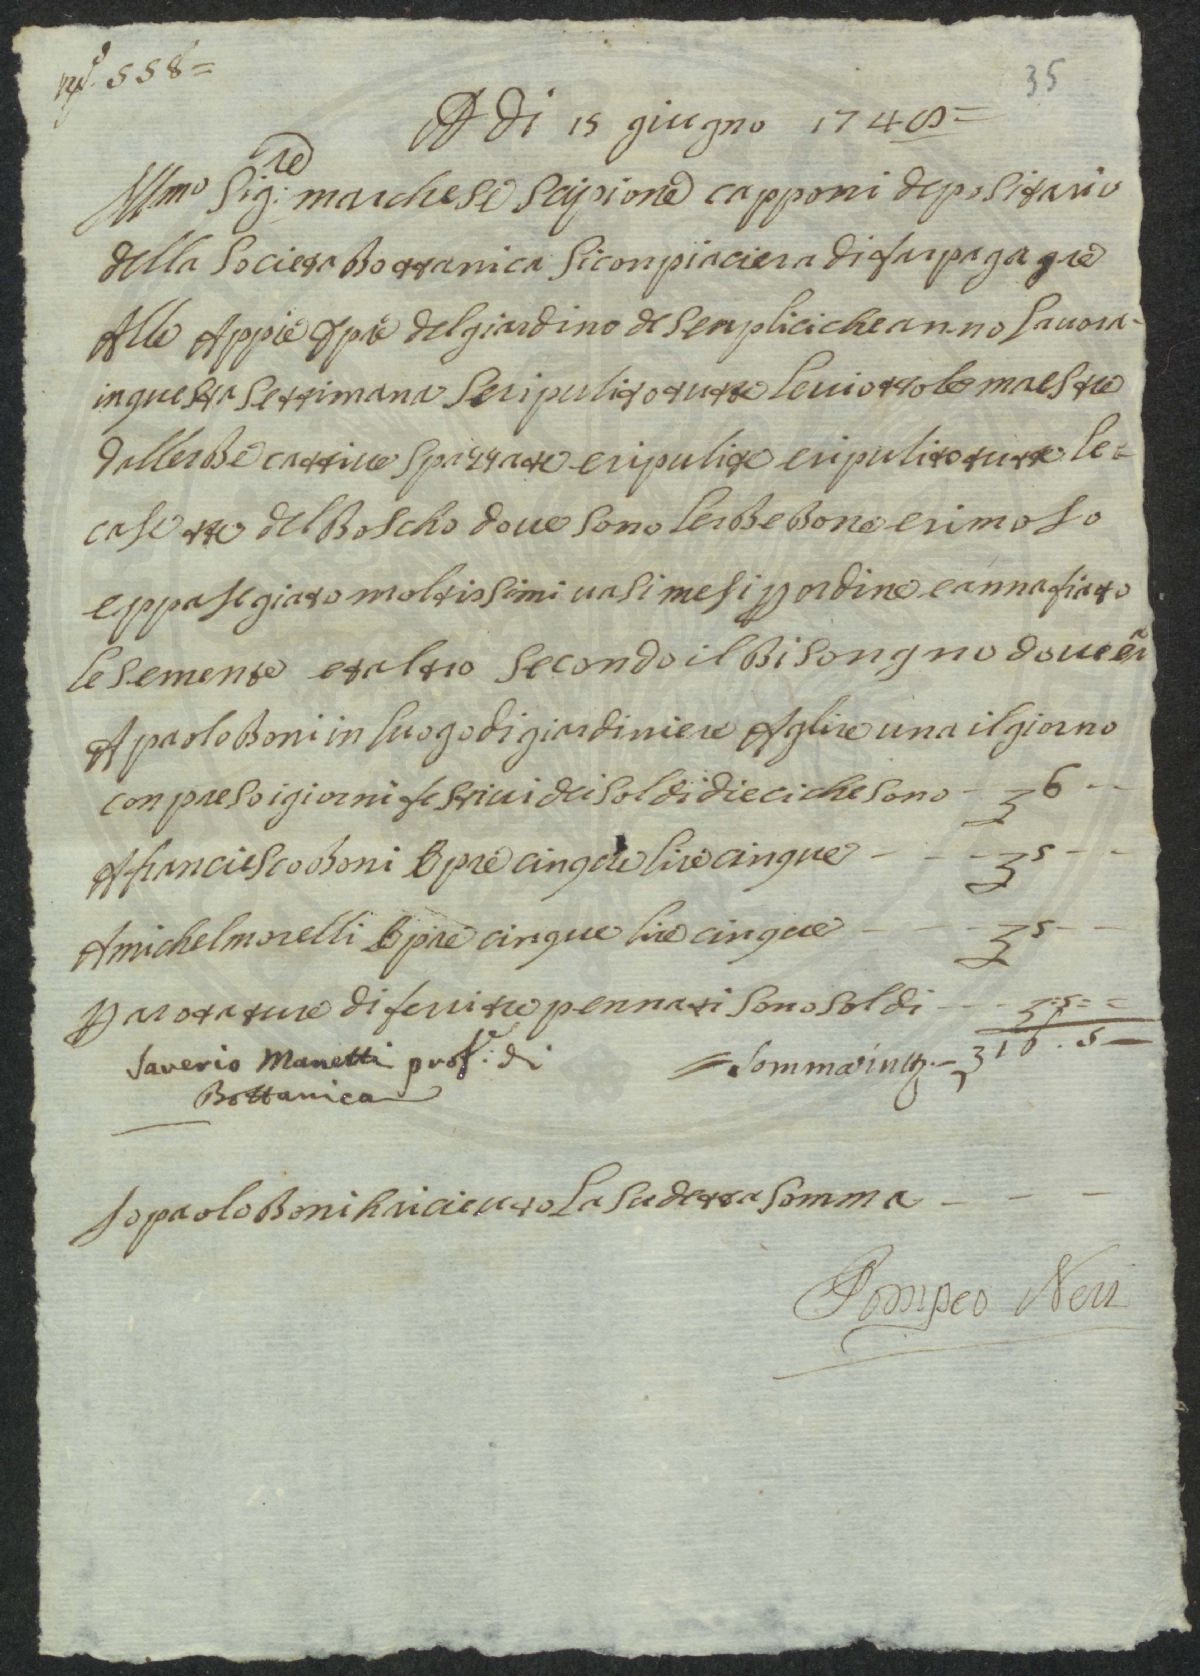 N.° 558=
35
A Di 15 giugno 1748=
Illmo Sig:re marchese Scipione capponi depositario
della Societa Bottanica Siconpiaciera di far pagagre
Alle Appiè Opre del giardino de Senplici che anno lauora-
in questa Settimana Se ripulito tutte le uiottole maestre
dallerBe cattiue spazzate e ripulite e ripulito tutte le=
casette del Boscho doue sono lerBe Bone e rimoso
e ppasegiato moltissimi uasi mesi p ordine e annafiato
le semente et altro secondo il Bisongno doue era
A paolo Boni in luogo di giardiniere A lire una il giorno
conpreso i giorni festiui dei soldi dieci che sono - £ 6 - -
A franciesco Boni Opre cinque lire cinque - - - £ 5 - -
A michel morelli Opre cinque lire cinque - - - £ 5 - -
P arotature di ferri tre pennati sono soldi - - £ :5 = =
Saverio Manetti prof.e di
Bottanica
= Somma in tt. - £ 16 . 5 -
Io paolo Boni h riceuto La sudetta somma - - -
Pompeo Neri